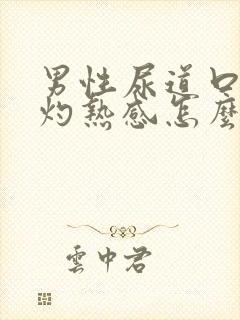 男性尿道口
灼熱感怎麼
雲中君